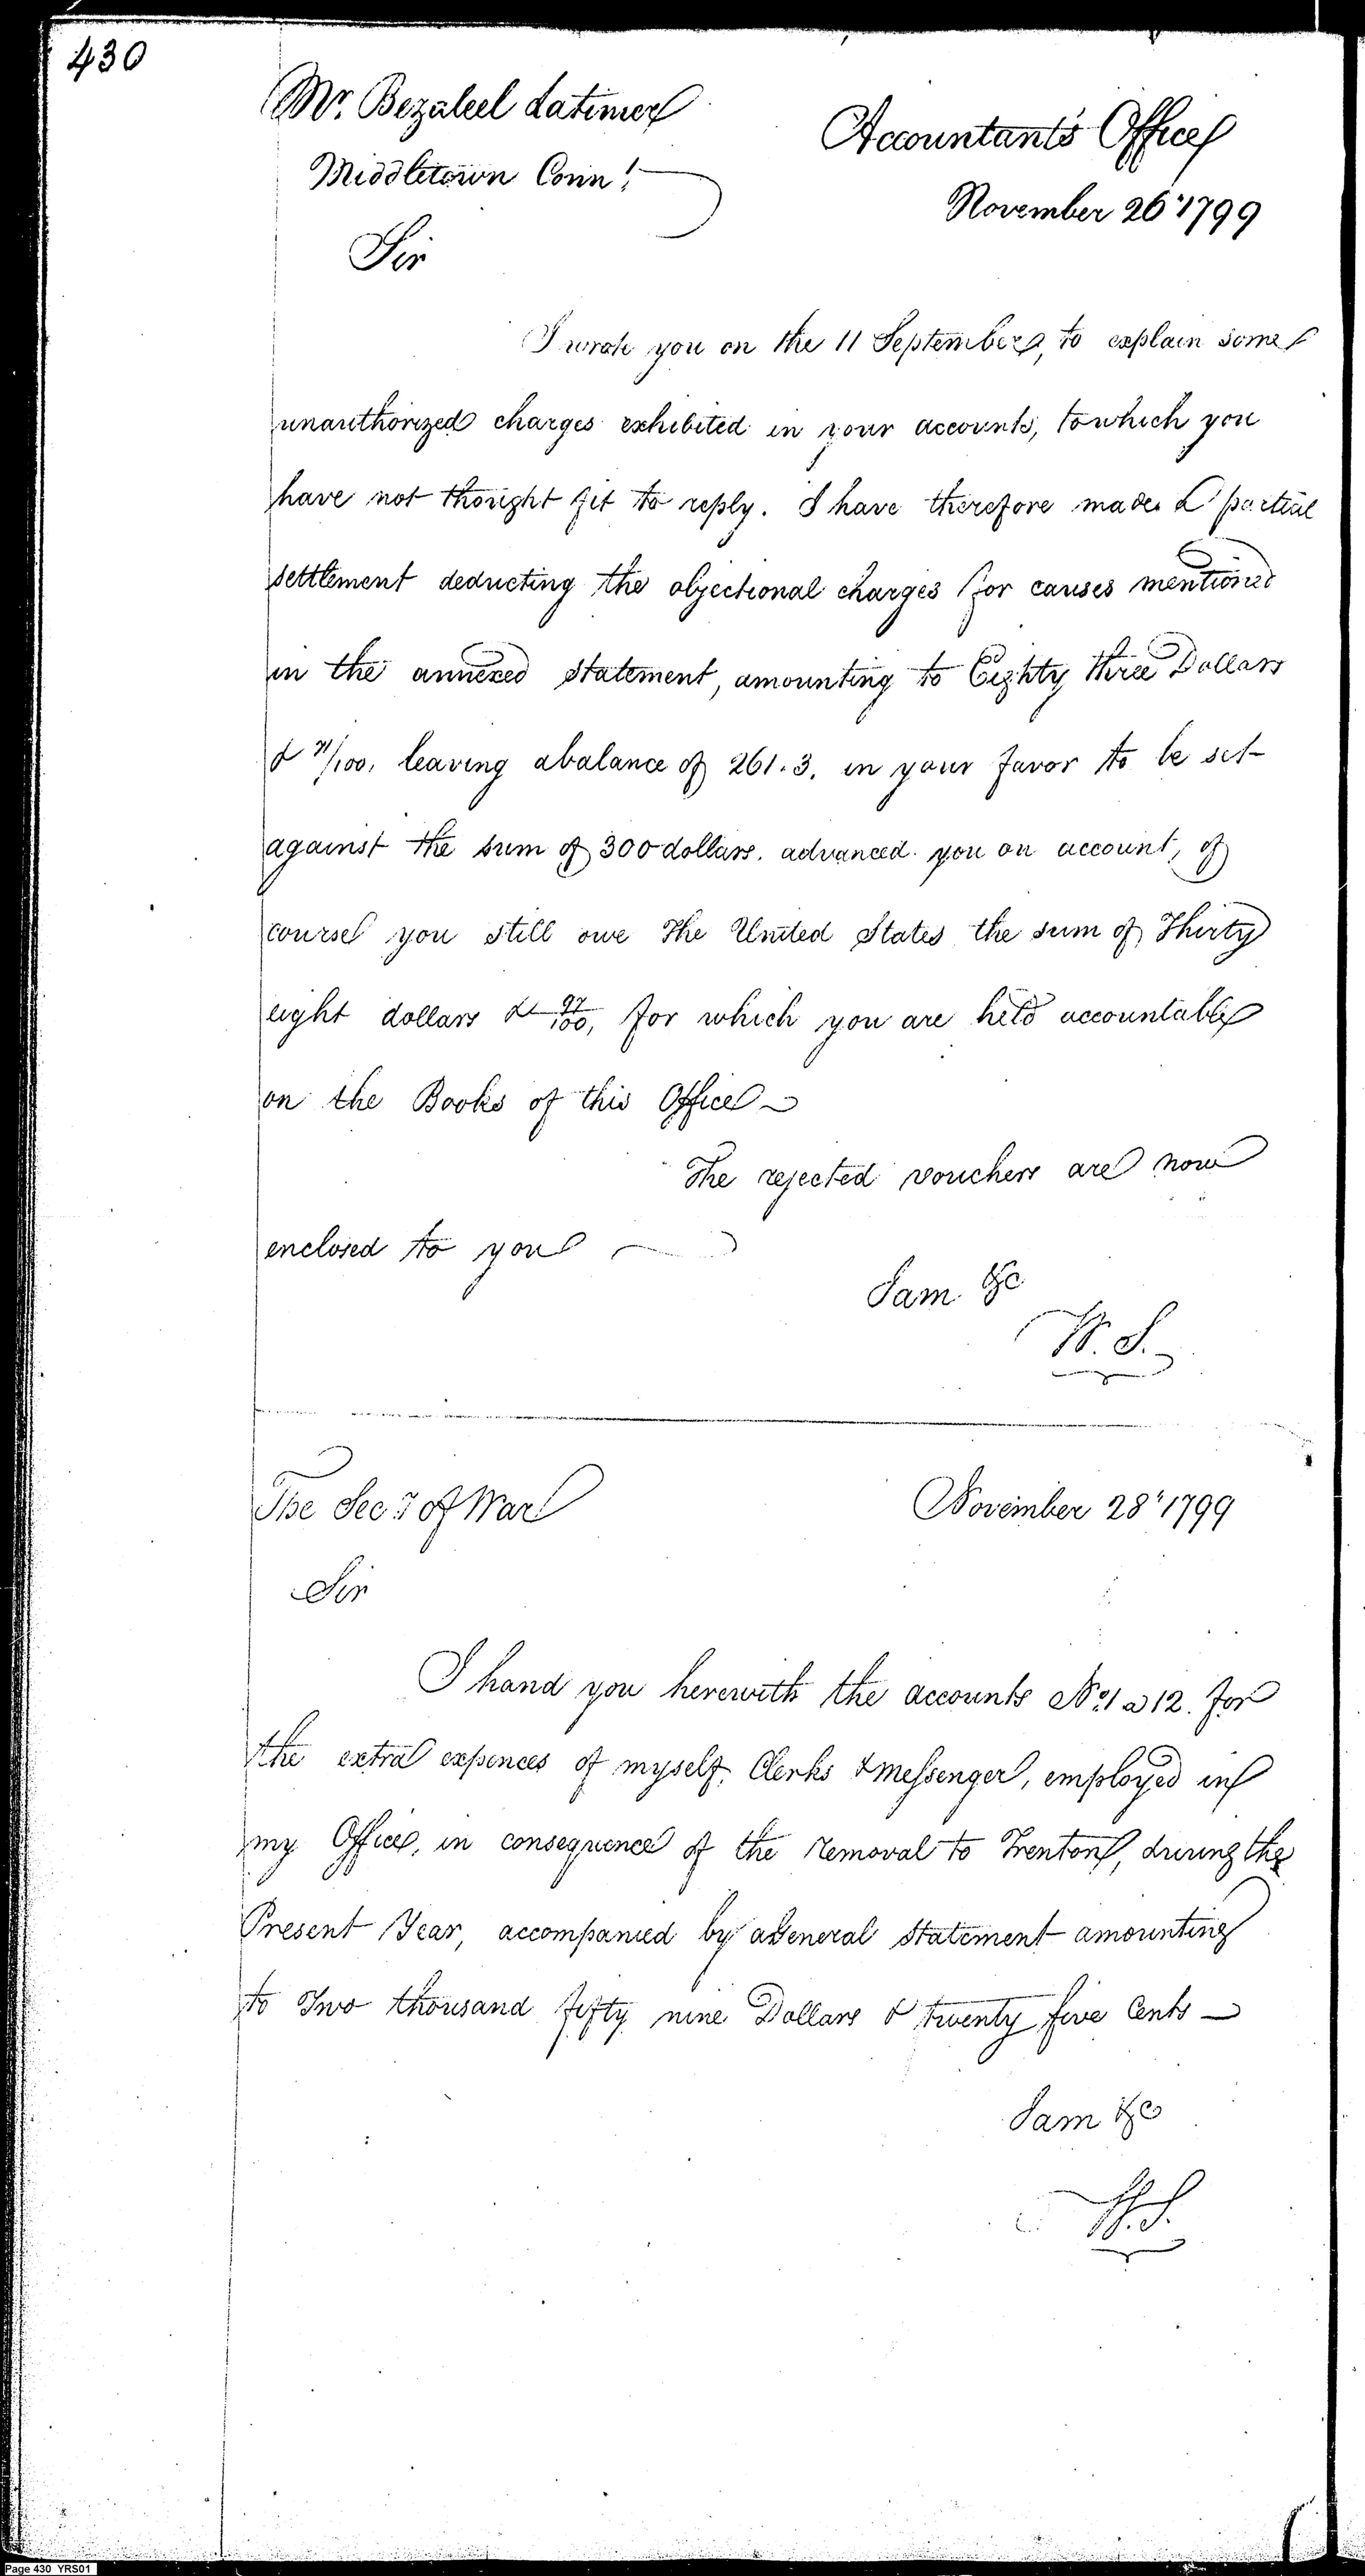 430
Mr. Bezaleel Latimer
Accountant's Office
Middletown Conn!
November 26 1799
Sir
I wrote you on the 11 September, to explain some
unauthorized charges exhibited in your accounts, to which you
have not thought fit to reply. I have therefore made a partial
settlement deducting the objectional charges for causes mentioned
in the annexed statement, amounting to Eighty three Dollars
& 71/100, leaving a balance of 261.3. in your favor to be set
against the sum of 300 dollars. advanced you on account, of
course you still owe the United States the sum of Thirty
eight dollars & 97/100, for which you are held accountable
on the Books of this Office
The rejected vouchers are now
enclosed to you
I am &c
W. S.
The Secy of War
November 28 1799
Sir
I hand you herewith the accounts No. 1 a 12. for
the extra expences of myself, Clerks & messenger, employed in
my Office, in consequence of the removal to Trenton, during the
Present Year, accompanied by a General statement amounting
to Two thousand fifty nine Dollars & twenty five Cents —
I am &c
W. S.
Page 430 YRS01